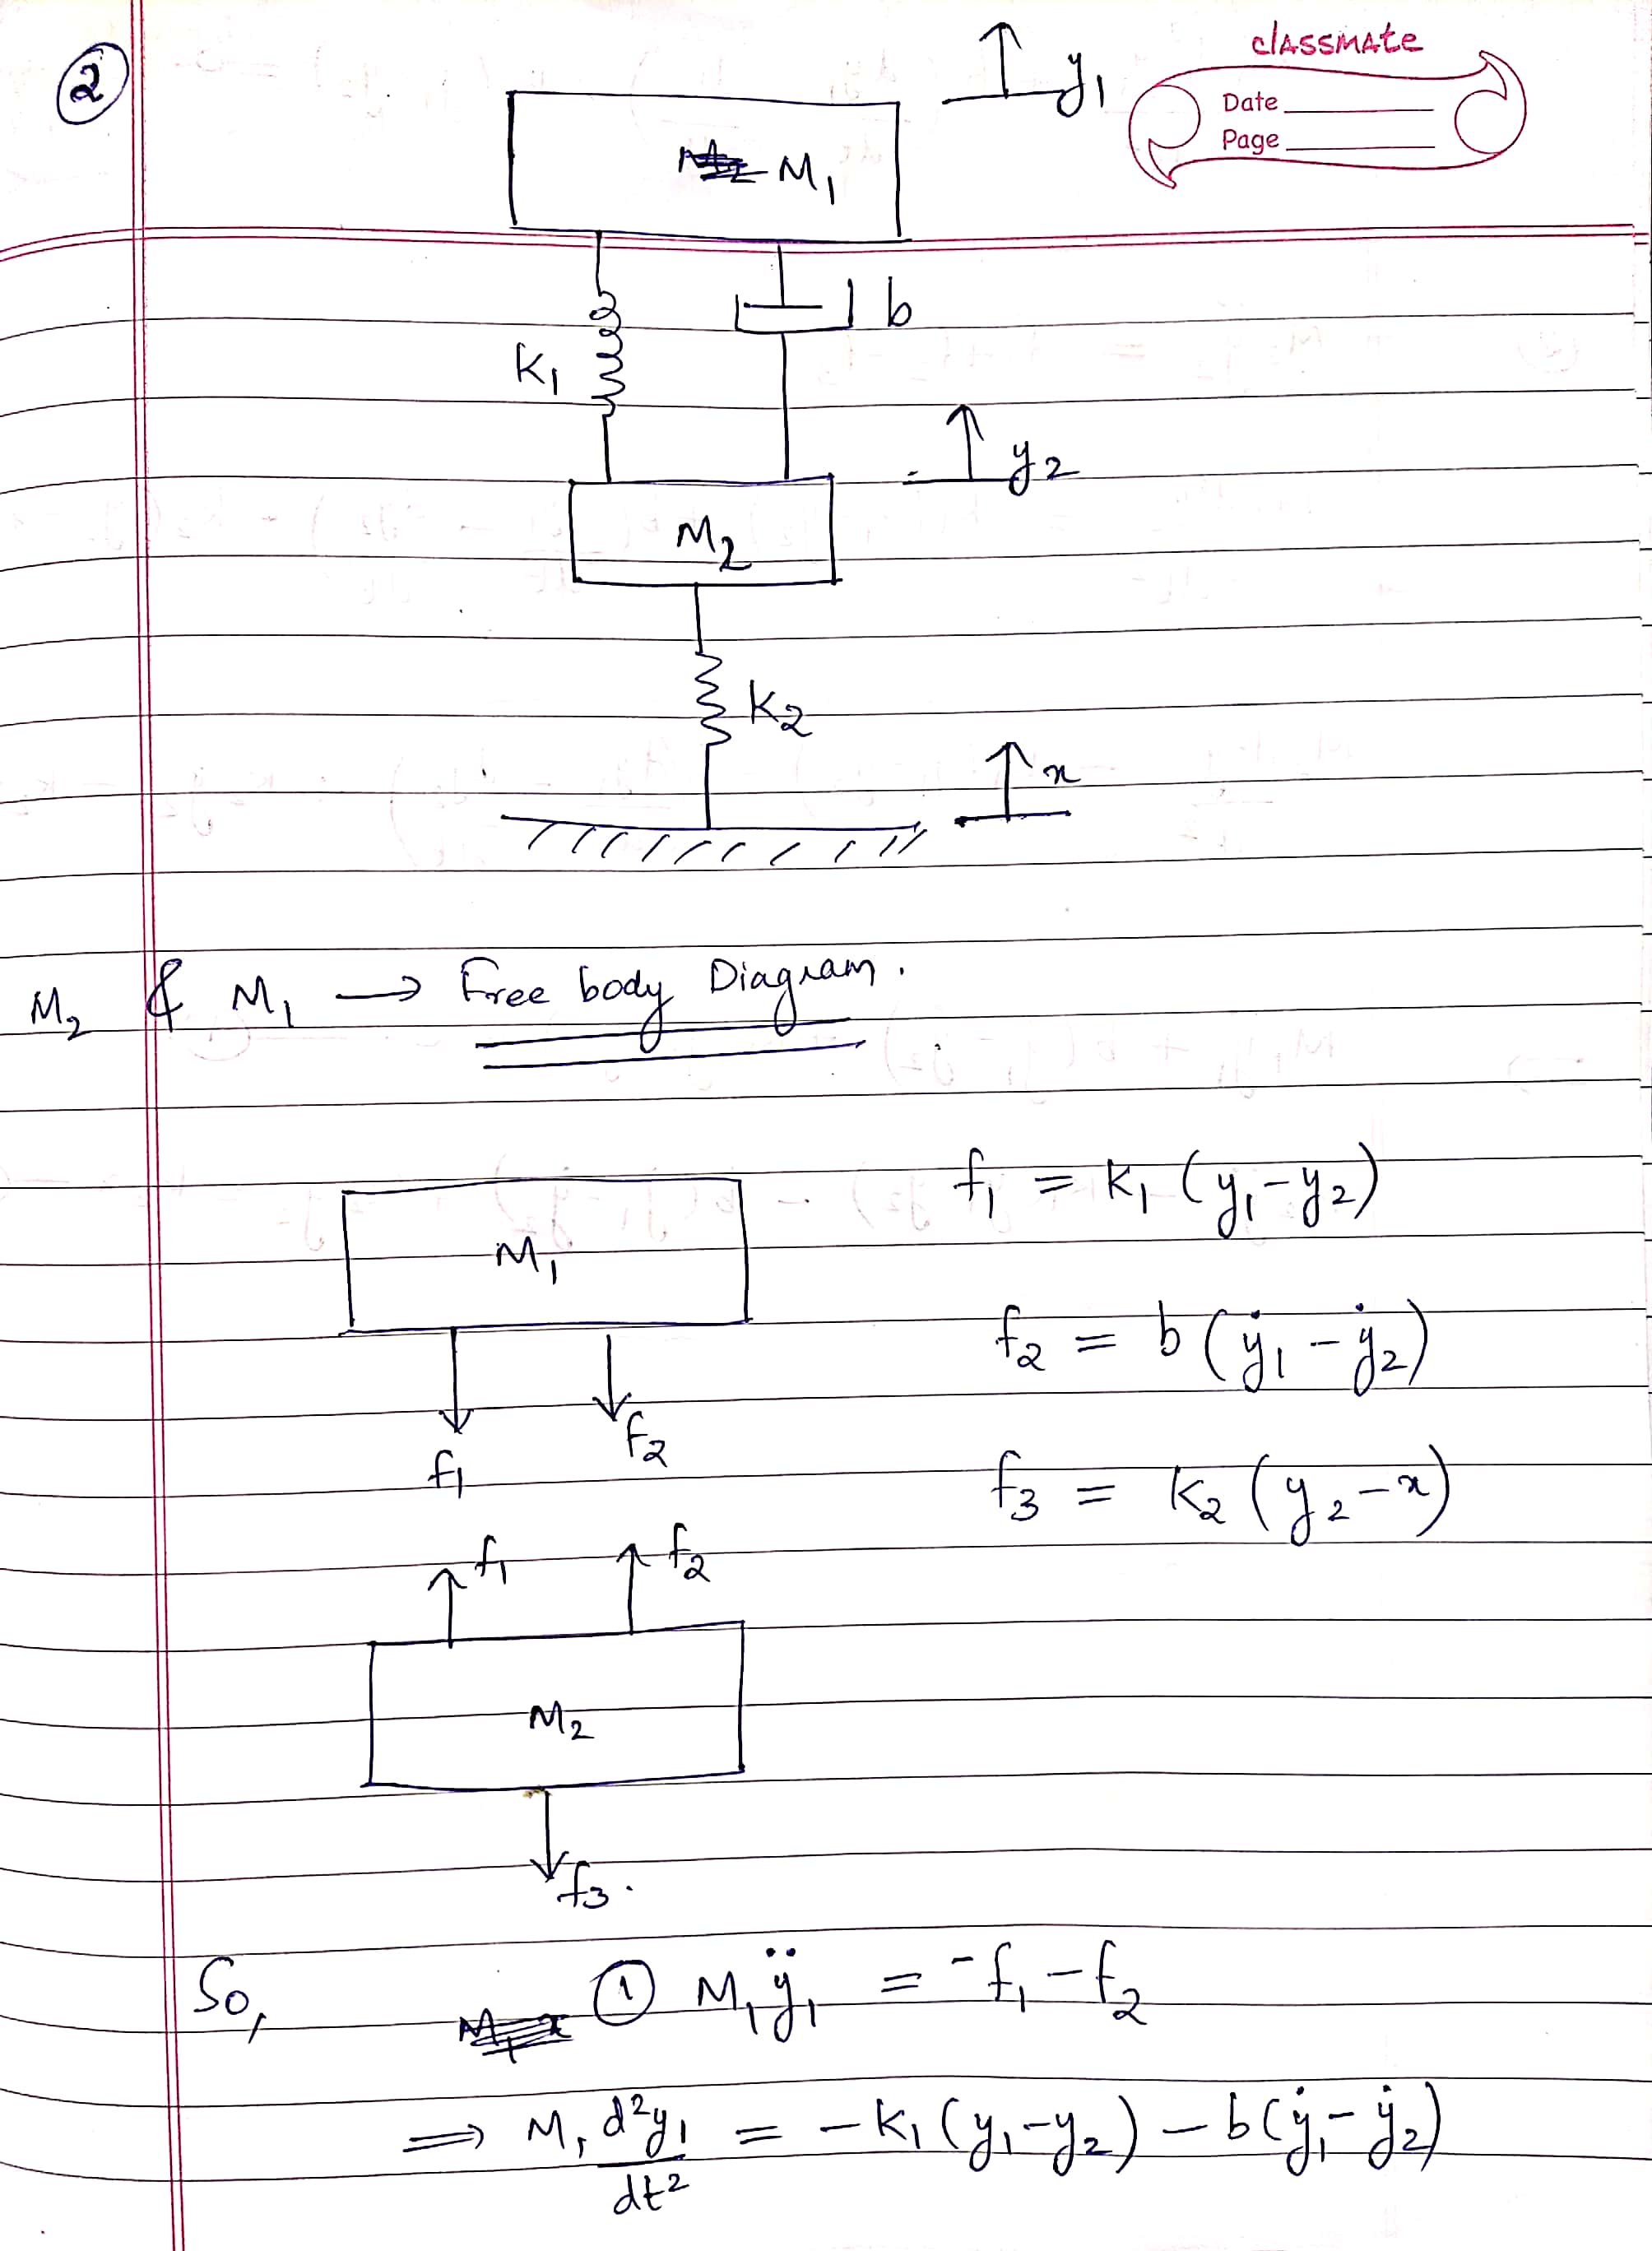 ②
classmate
Date
Page
y₁
M₁
b
K₁
y₂
M₂
K₂
x
M₂ & M₁ → Free body Diagram.
f₁ = K₁ (y₁-y₂)
M₁
f₂ = b (ẏ₁ - ẏ₂)
f₁ F₂
f₃ = K₂ (y₂-x)
f₁ f₂
M₂
f₃.
So, ① M₁ÿ₁ = -f₁ - f₂
⇒ M₁ d²y₁/dt² = -K₁ (y₁-y₂) - b(ẏ₁- ẏ₂)